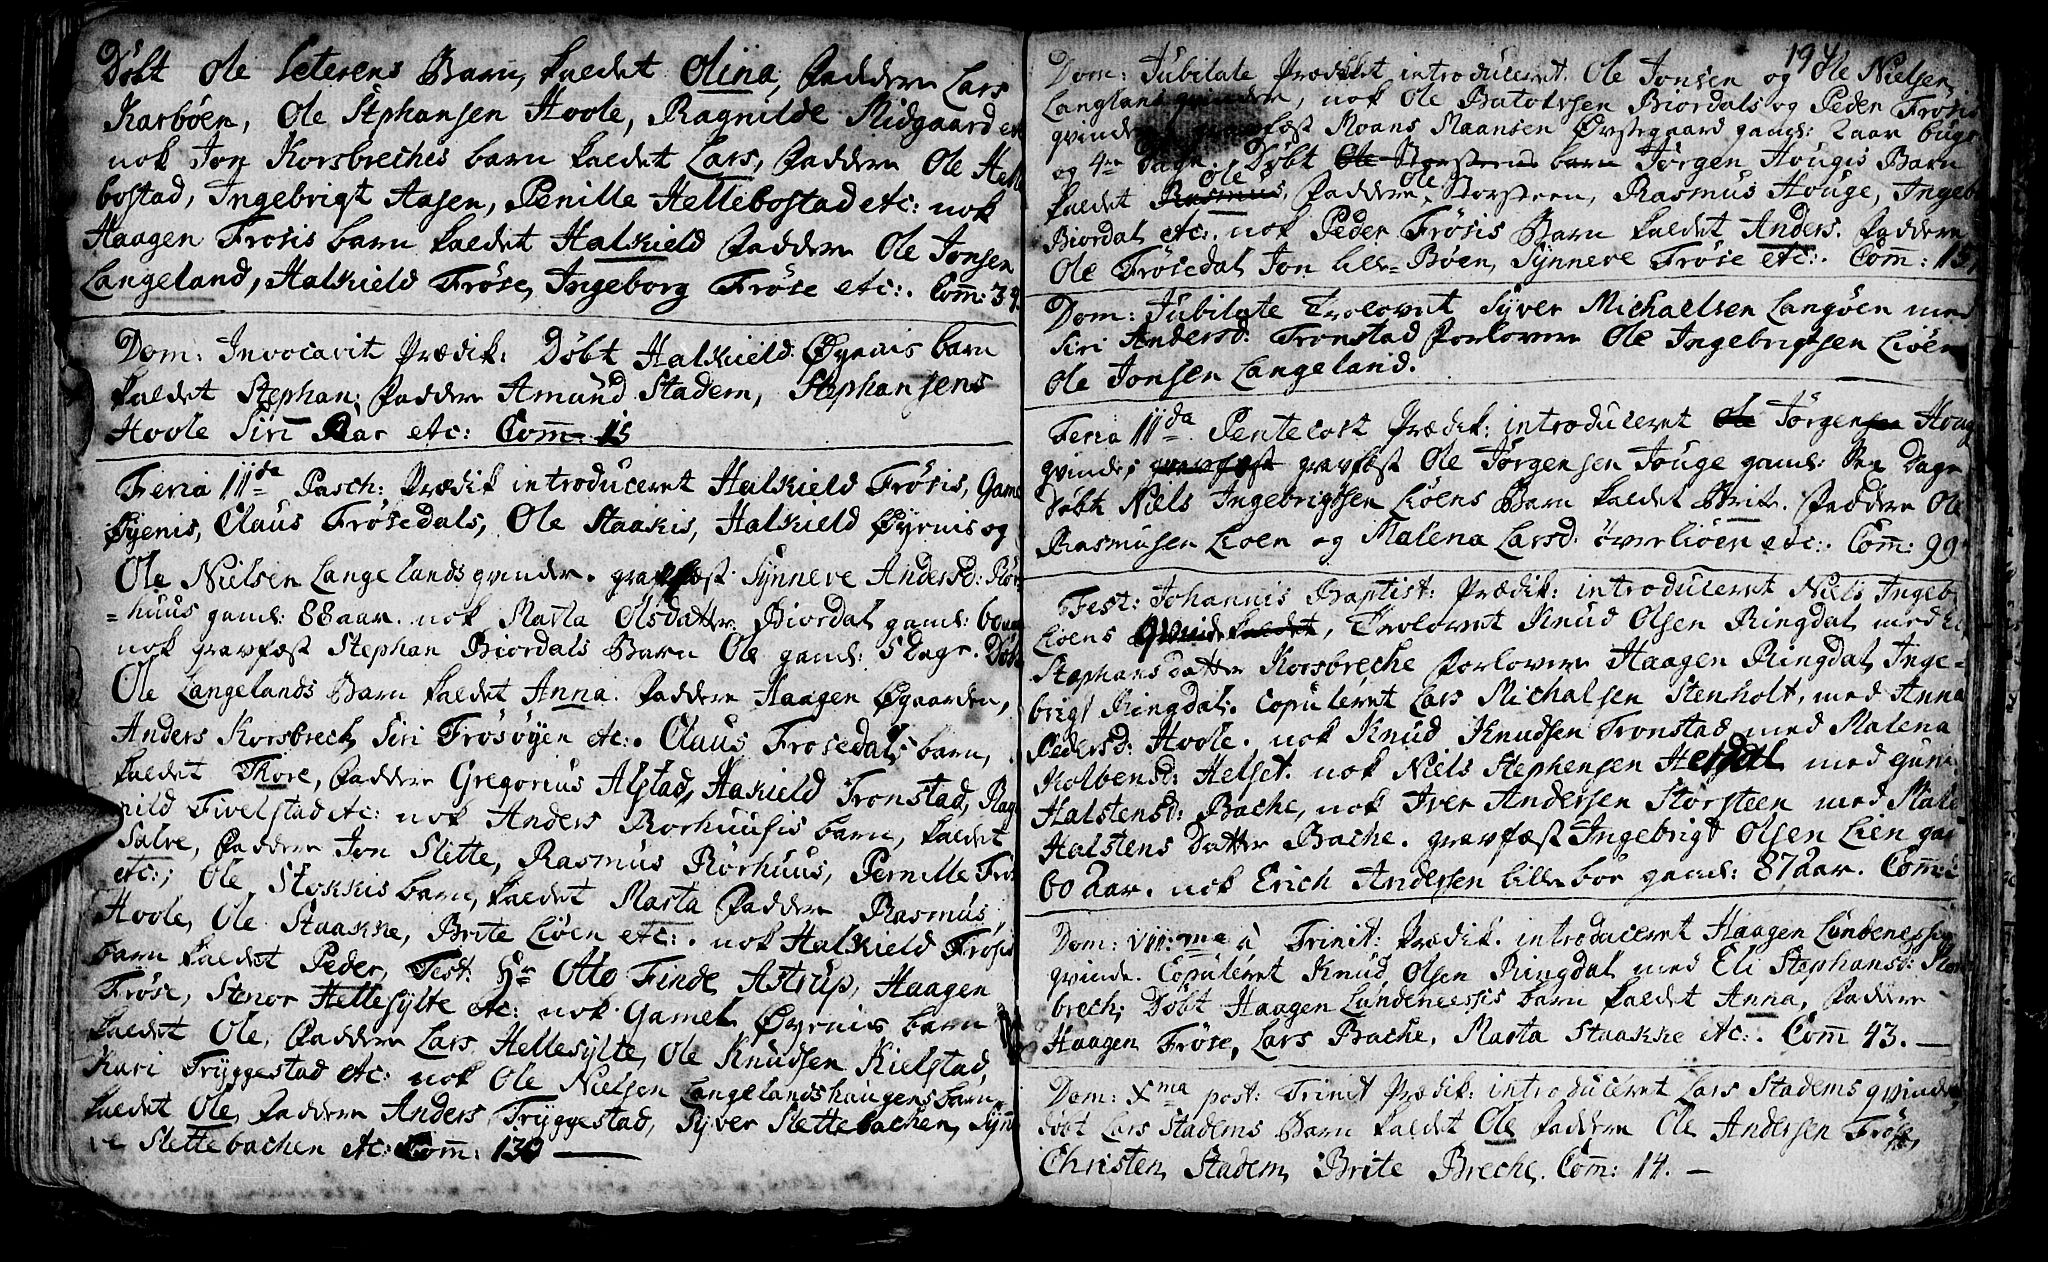 Döbt Ole Seterens Barn, kaldet Olina, Faddere Lars
Karböen, Ole Stphansen Hoole, Ragnilde Midgaard etc
nok Jon Korsbreches barn kaldet Lars, Faddere Ole Helle
bostad, Ingebrigt Aasen, Penille Hellebostad etc: nok
Haagen Frosis barn kaldet Halkield Faddere Ole Jonsen
Langeland, Halkield Fröse, Ingeborg Fröse etc:. Com̄: 39.
Dom: Invocavit Prædik: Döbt Halkield Øyenis barn
kaldet Stephan; Faddere Amund Stadem, Stephansens
Hoole Siri Aar etc: Com̄. 15
Feria IIda Pasch: Prædik introduceret Halkield Frösis, Gamel
Øyenis, Claus Frösedals, Ole Staakis, Halkield Øyenis og
Ole Nielsen Langelands qvinder. gravfæst Synneve Andersd: Rör-
=huus gaml: 88 aar. nok Marta Olsdatter Biordal gaml: 60 aar
nok gravfæst Stephan Biordals Barn Ole gaml: 5 Dage. Döbt
Ole Langelands Barn kaldet Anna. Faddere Haagen Øgaarden,
Anders Korsbrech, Siri Frösöyen etc:. Claus Frosedals barn,
kaldet Thore, Faddere Gregorius Alstad, Hakield Tronstad, Rag-
nild Fivelstad etc: nok Anders Rorhuusis barn, kaldet
Salve, Faddere Jon Slitte, Rasmus Rörhuus, Pernille Frös
etc:; Ole Stokkis barn, kaldet Marta Faddere Rasmus
Hoole, Ole Staakke, Brite Liöen etc:. nok Halkield Frösis
barn kaldet Peder, Test: Hr Otto Finde Astrup, Haagen
Fröse, Stenor Hellesylte etc: nok Gamel Øyenis barn
kaldet Ole, Faddere Lars Hellesylte, Ole Knudsen Kielstad,
Kari Tryggestad etc: nok Ole Nielsen Langelandshaugens barn,
kaldet Ole, Faddere Anders Tryggestad, Syver Slettebachen, Synne
ve Slettebachen etc: Com̄: 130
194
Dom: Jubilate Prædiket introduceret Ole Jonsen og Ole Nielsen
Langlands qvinder, nok Ole Batolvsen Biordals og Peder Frösis
qvinder gravfæst Moans Maansen Øvstegaard gaml: 2 aar
og 4re Dage. Döbt Ole Storsteens barn Jörgen Hougis Barn
kaldet Rasmus Ole, Faddere Ole Storsteen, Rasmus Houge, Ingeb
Biordal etc:. nok Peder Frösis Barn kaldet Anders. Faddere
Ole Frösedal, Jon lille=Böen, Synneve Fröse etc:. Com̄: 15
Dom: Jubilate Trolovet Syver Michaelsen Langöen med
Siri Andersd: Tronstad Forlovere Ole Ingebrigtsen Liöen
Ole Jonsen Langeland.
Feria IIda Pentecost Prædik: introduceret Ole Jörgensen Houg
qvinde; gravfæst gravfæst Ole Jörgensen Jouge gaml: Dage
Döbt Niels Ingebrigtsen Liöens Barn kaldet Brite. Faddere Ole
Rasmusen Lioen og Malena Larsd: överliöen etc:. Com̄: 99
Fest: Johannis Baptist: Prædik: introduceret Niels Ingeb
Lioens qvinde kaldet, Trolovet Knud Olsen Ringdal med Eli
Staphans datter Korsbreche Forlovere Haagen Ringdal, Inge-
brigt Ringdal. Copuleret Lars Michalsen Stenholt, med Anna
Pedersd: Hoole. nok Knud Knudsen Tronstad med Malena
Kolbensd: Helset. nok Niels Stephensen Hersdal med Guni
Halstensd: Bache, nok Iver Andersen Storsteen med Male
Halstens Datter Bache. gravfæst Ingebrigt Olsen Lien gaml
60 aar. nok Erich Andersen lille boe gaml: 87 aar. Com̄:
Dom: VII:ma à Trinit: Prædik. introduceret Haagen Lundenessen
qvinde. Copuleret Knud Olsen Ringdal med Eli Stephansd: Kors
brech; Döbt Haagen Lundenessis barn kaldet Anna, Faddere
Haagen Fröse, Lars Bache, Marta Staakke etc:. Com̄ 43.
Dom: Xma post: Trinit Prædik: introduceret Lars Stadems qvinde
döbt Lars Stadems Barn kaldet Ole Faddere Ole Andersen Fröse,
Christen Stadem, Brite Breche. Com̄: 14.